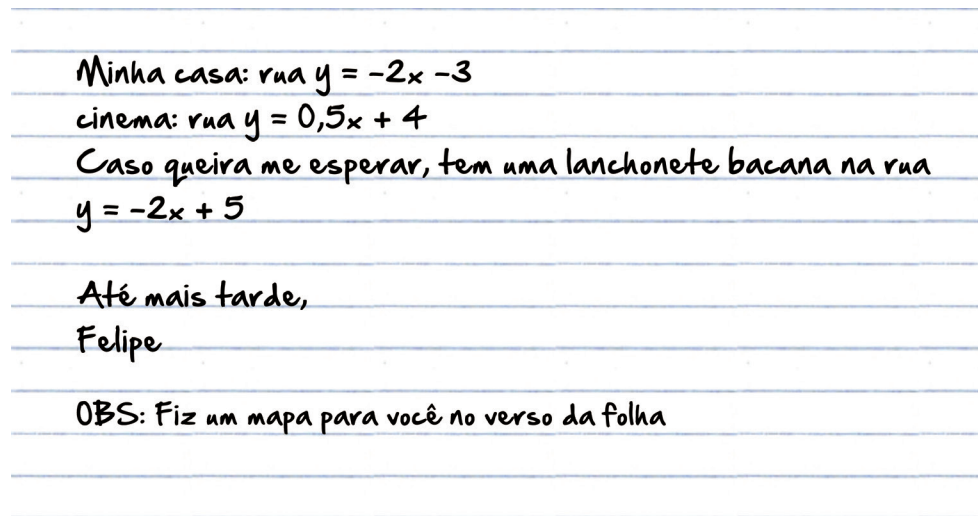 Minha casa: rua y = -2x -3
cinema: rua y = 0,5x + 4
Caso queira me esperar, tem uma lanchonete bacana na rua
y = -2x + 5
Até mais tarde,
Felipe
OBS: Fiz um mapa para você no verso da folha